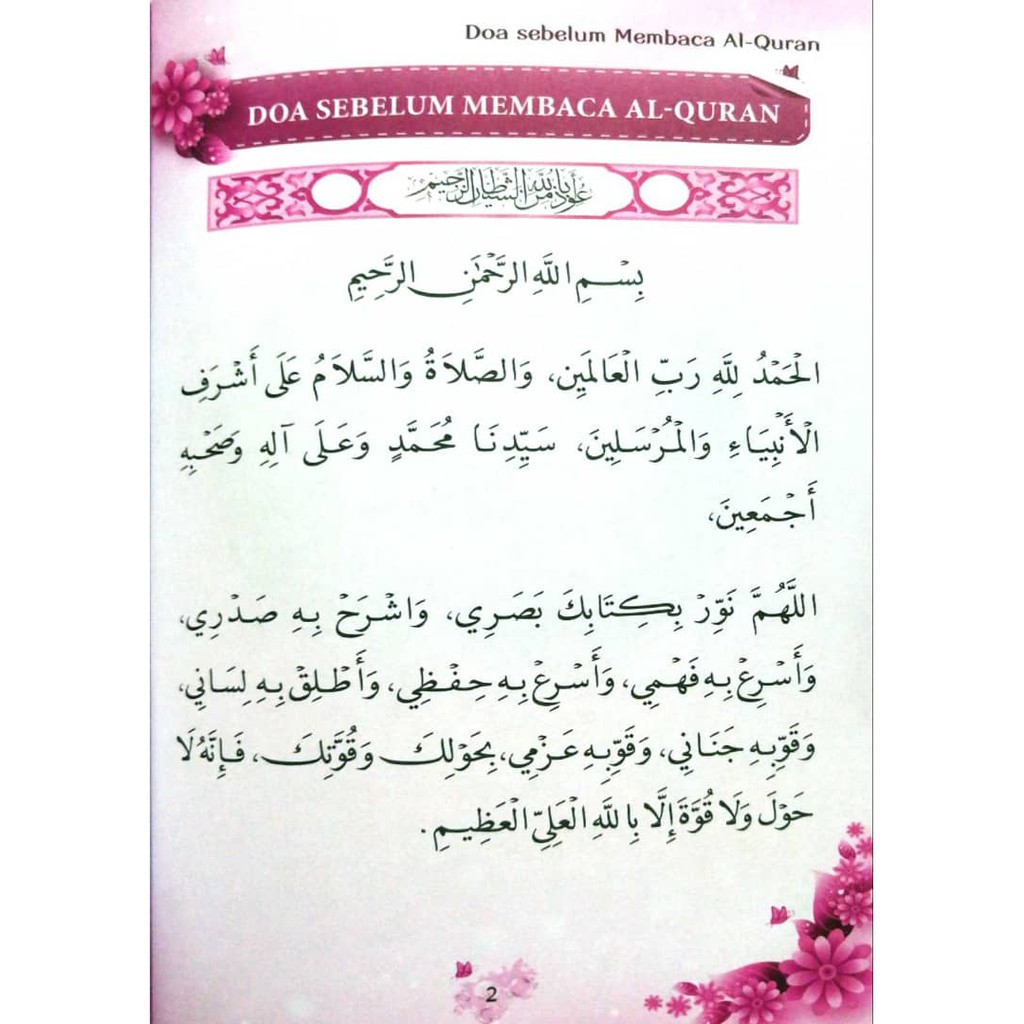 Doa sebelum Membaca Al-Quran
DOA SEBELUM MEMBACA AL-QURAN
أعوذ بالله من الشيطان الرجيم
بِسْمِ اللَّهِ الرَّحْمَٰنِ الرَّحِيمِ
الْحَمْدُ لِلَّهِ رَبِّ الْعَالَمِينَ، وَالصَّلَاةُ وَالسَّلَامُ عَلَى أَشْرَفِ
الْأَنْبِيَاءِ وَالْمُرْسَلِينَ، سَيِّدِنَا مُحَمَّدٍ وَعَلَى آلِهِ وَصَحْبِهِ
أَجْمَعِينَ،
اللَّهُمَّ نَوِّرْ بِكِتَابِكَ بَصَرِي، وَاشْرَحْ بِهِ صَدْرِي،
وَأَسْرِعْ بِهِ فَهْمِي، وَأَسْرِعْ بِهِ حِفْظِي، وَأَطْلِقْ بِهِ لِسَانِي،
وَقَوِّ بِهِ جَنَانِي، وَقَوِّ بِهِ عَزْمِي، بِحَوْلِكَ وَقُوَّتِكَ، فَإِنَّهُ لَا
حَوْلَ وَلَا قُوَّةَ إِلَّا بِاللَّهِ الْعَلِيِّ الْعَظِيمِ.
2